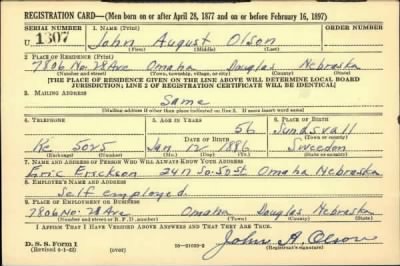 REGISTRATION CARD—(Men born on or after April 28, 1877 and on or before February 16, 1897)
SERIAL NUMBER 1. NAME (Print) ORDER NUMBER
U 1307 John August Olson
(First) (Middle) (Last)
2. PLACE OF RESIDENCE (Print)
7806 No. 28 Ave Omaha Douglas Nebraska
(Number and street) (Town, township, village, or city) (County) (State)
[THE PLACE OF RESIDENCE GIVEN ON THE LINE ABOVE WILL DETERMINE LOCAL BOARD
JURISDICTION; LINE 2 OF REGISTRATION CERTIFICATE WILL BE IDENTICAL]
3. MAILING ADDRESS
Same
[Mailing address if other than place indicated on line 2. If same insert word same]
4. TELEPHONE 5. AGE IN YEARS 6. PLACE OF BIRTH
56 Sundsvall
DATE OF BIRTH (Town or county)
Ke 5025 Jan 12 1886 Sweeden
(Exchange) (Number) (Mo.) (Day) (Yr.) (State or country)
7. NAME AND ADDRESS OF PERSON WHO WILL ALWAYS KNOW YOUR ADDRESS
Eric Erickson So. 50 St. Omaha Nebraska
8. EMPLOYER'S NAME AND ADDRESS
Self employed
9. PLACE OF EMPLOYMENT OR BUSINESS
7806 No. 28 Ave Omaha Douglas Nebraska
(Number and street or R. F. D. number) (Town) (County) (State)
I AFFIRM THAT I HAVE VERIFIED ABOVE ANSWERS AND THAT THEY ARE TRUE.
D. S. S. Form 1 John A. Olson
(Revised 4-1-42) (over) (Registrant's signature)